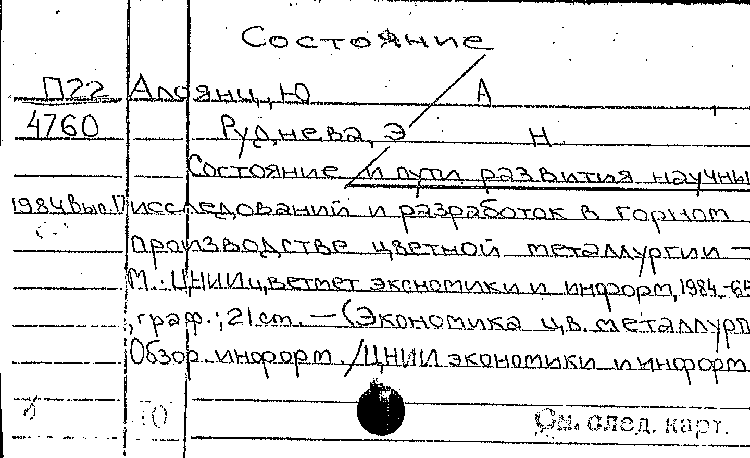 Состояние
П22 Алоянц, Ю А
4760 Руднева, Э Н
Состояние и пути развития научны
1984 вып. исследований и разработок в горном
производстве цветной металлургии —
М.: ЦНИИцветмет экономики и информ, 1984.-
, граф.; 21 cm. — (Экономика цв. металлург
Обзор. информ. / ЦНИИ экономики и информ
10 См. след. карт.